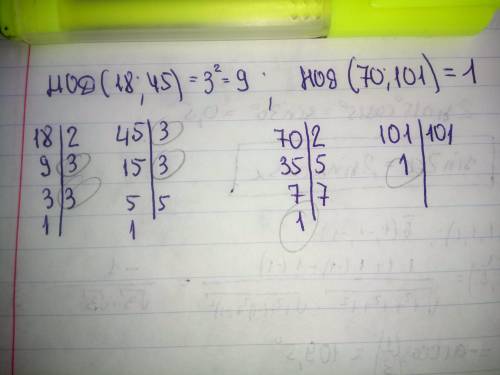 НОД(18; 45) = 3² = 9 ; НОД(70; 101) = 1
18|2 45|3 70|2 101|101
9|3 15|3 35|5 1
3|3 5|5 7|7
1 1 1